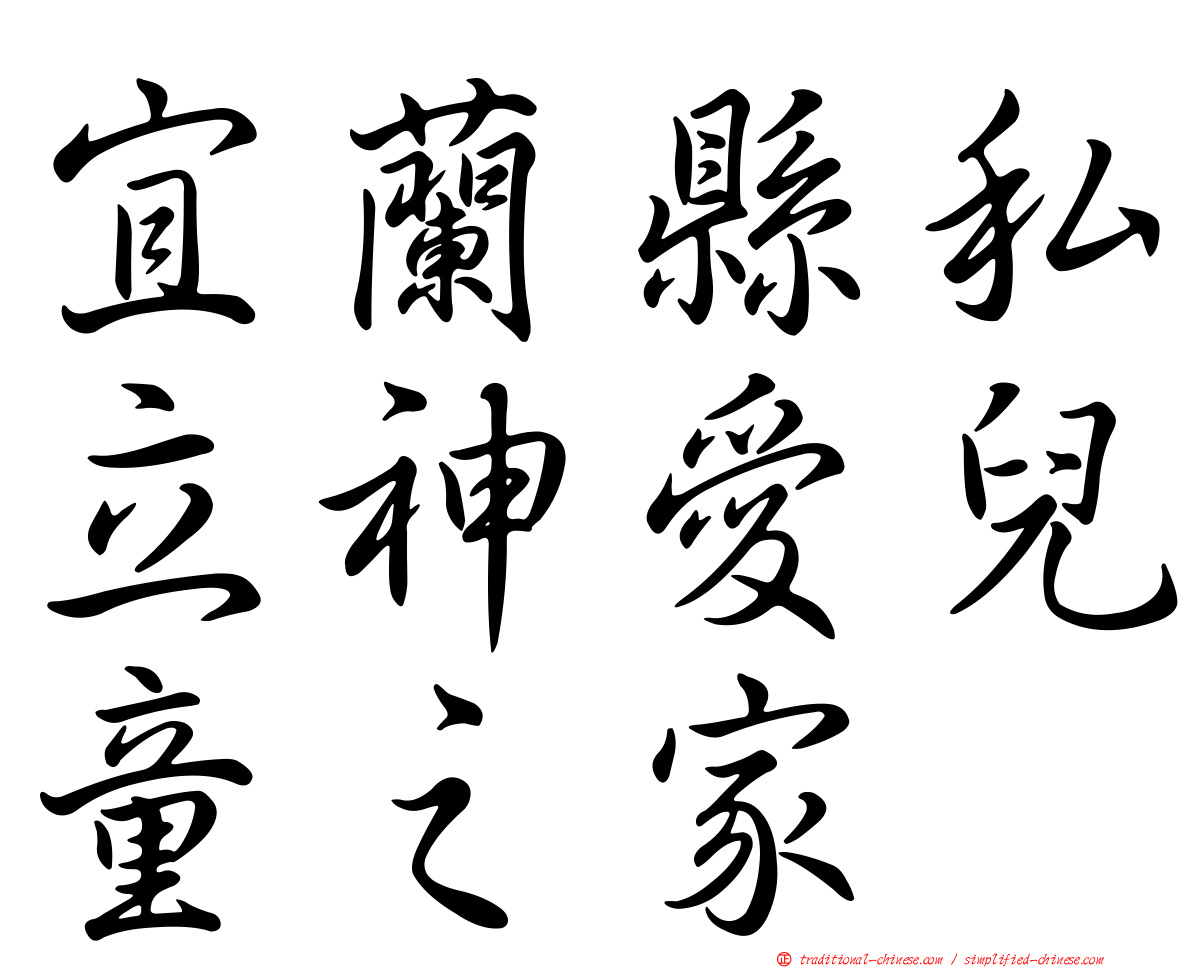 宜蘭縣私
立神愛兒
童之家
㊣ traditional-chinese.com / simplified-chinese.com